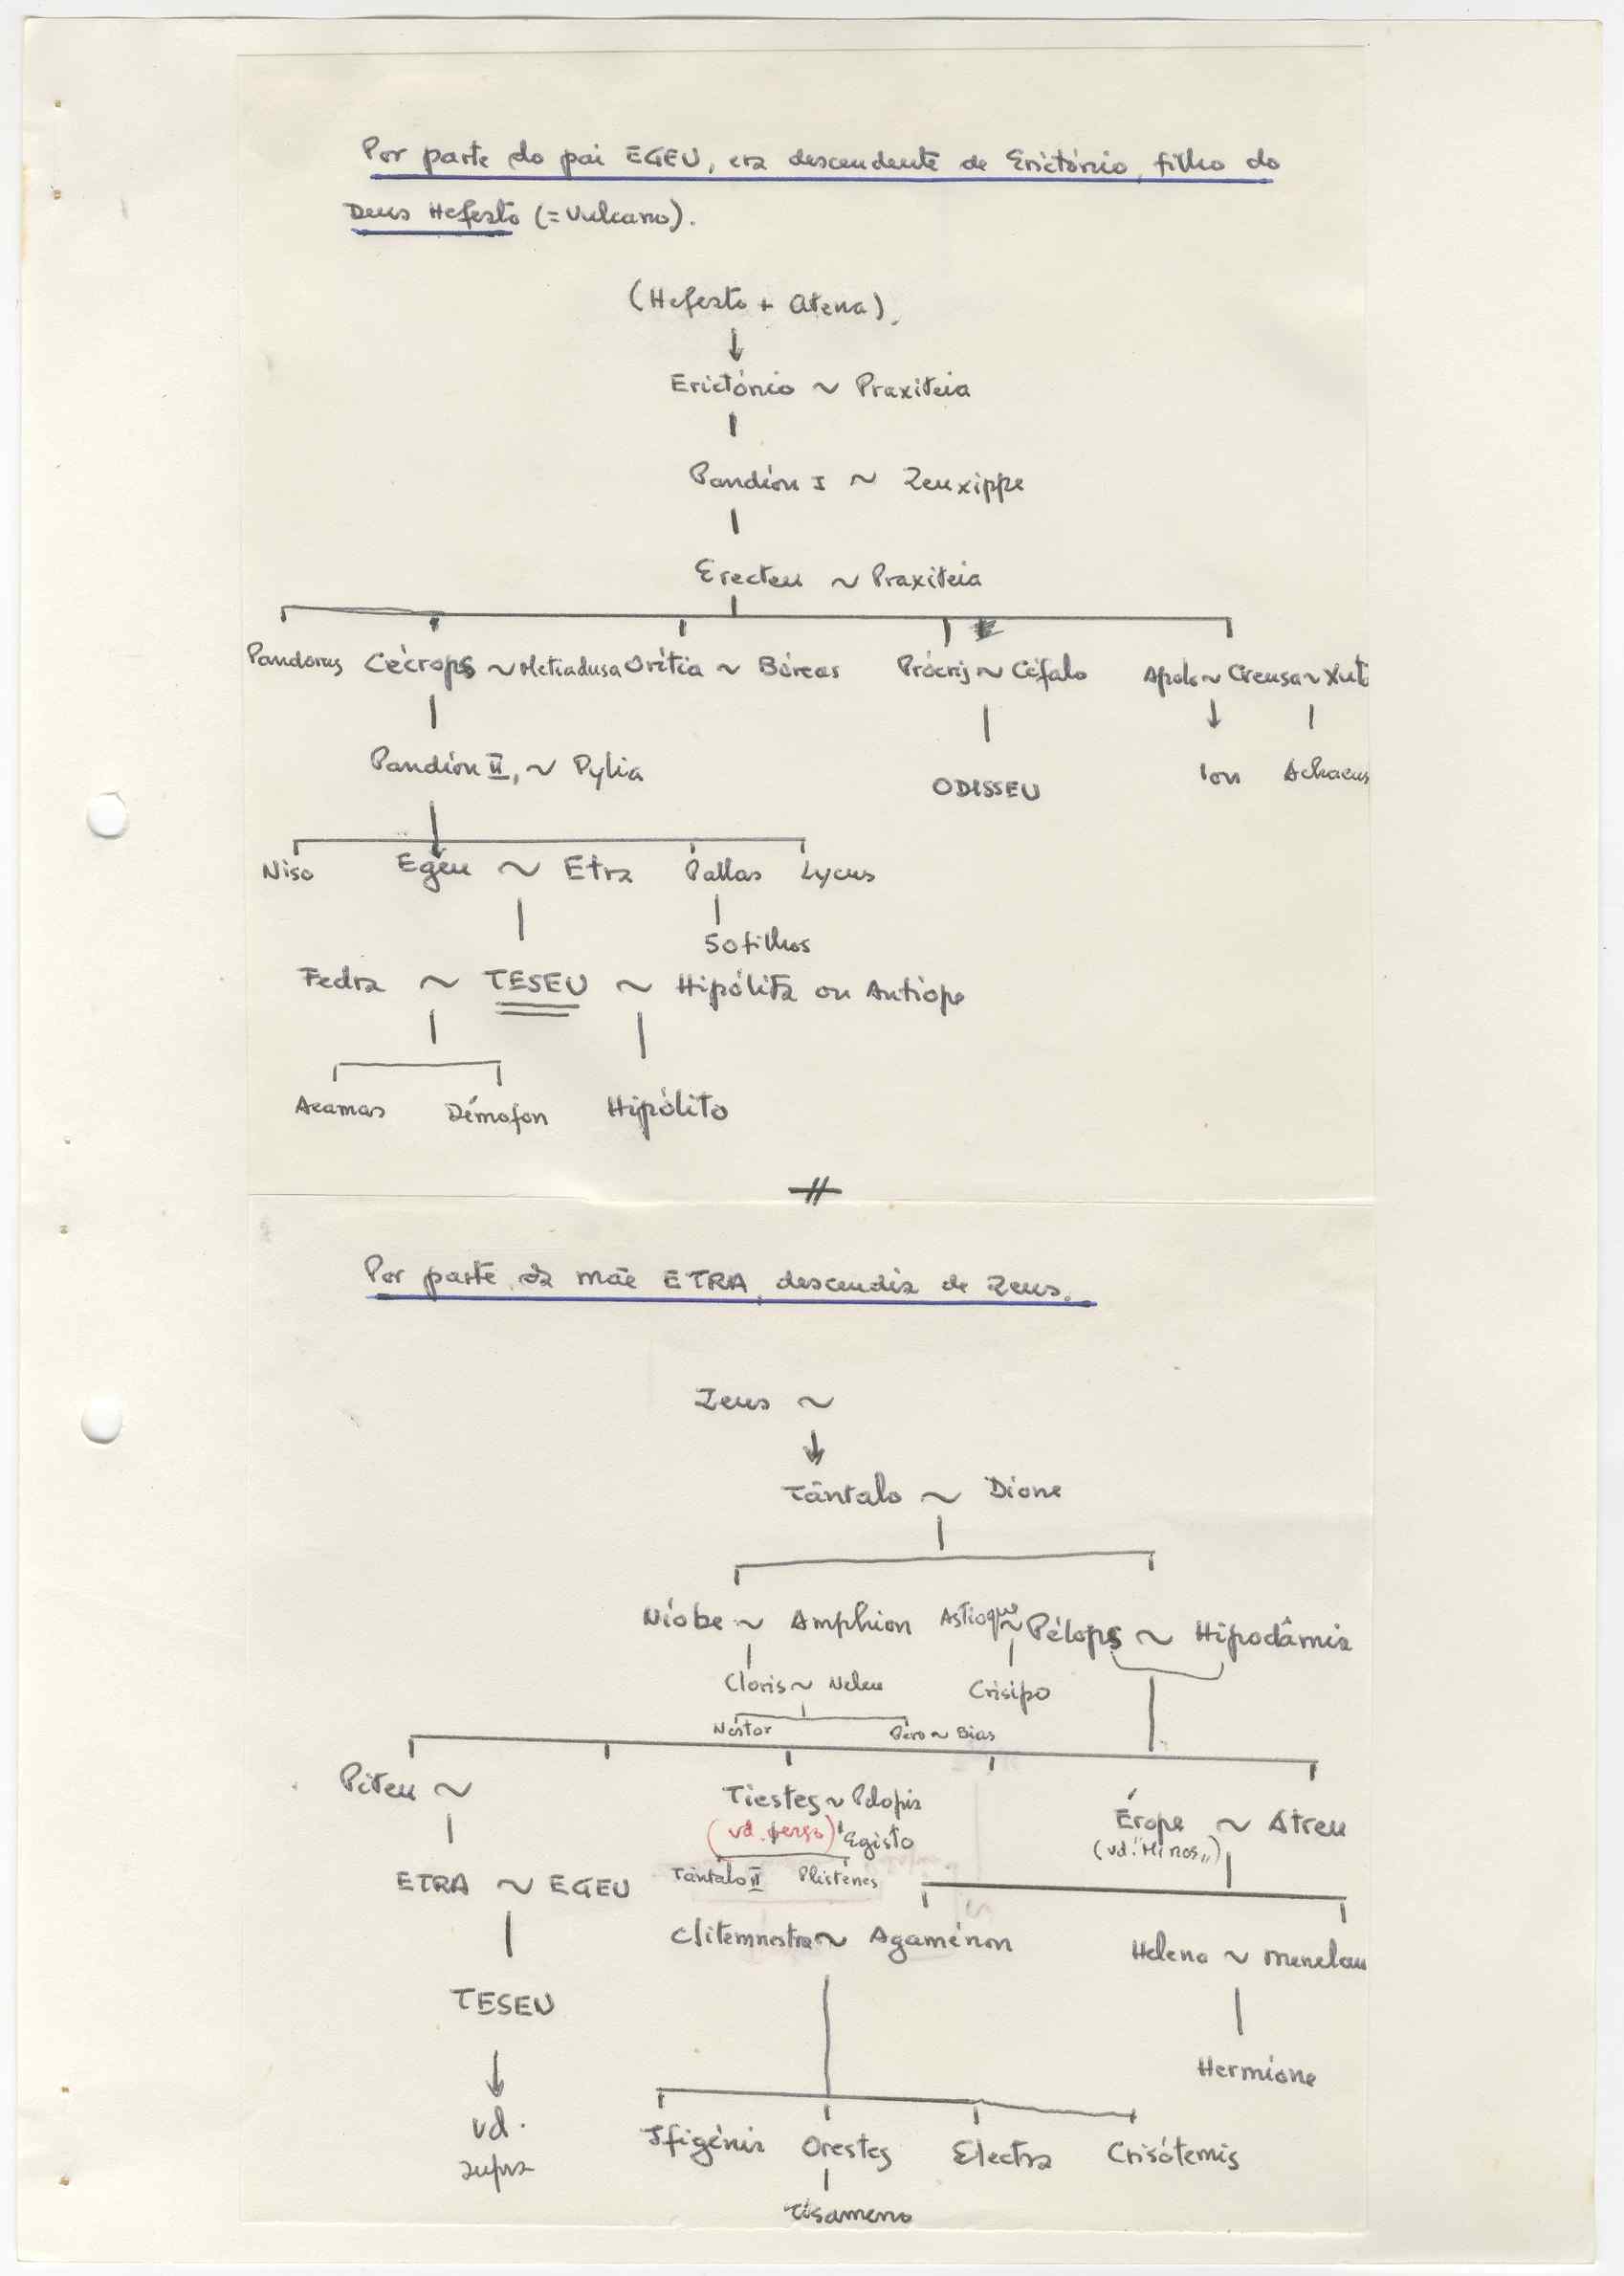 Por parte do pai EGEU, era descendente de Erictónio, filho do
Deus Hefesto (= Vulcano).
(Hefesto + Atena).
Erictónio ~ Praxiteia
Pandíon I ~ Zeuxippe
Erecteu ~ Praxiteia
Pandorus Cécrops ~ Metiadusa Orítia ~ Bóreas Prócris ~ Céfalo Apolo ~ Creusa ~ Xut
Pandíon II, ~ Pylia
ODISSEU Ion Achaeus
Niso Egeu ~ Etra Pallas Lycus
50 filhos
Fedra ~ TESEU ~ Hipólita ou Antiope
Acamas Démofon Hipólito
Por parte da mãe ETRA, descendia de Zeus.
Zeus ~
Tântalo ~ Dione
Níobe ~ Amphion Astioque ~ Pélops ~ Hipodâmia
Cloris ~ Neleu Crisipo
Néstor Pero ~ Bias
Piteu ~ Tiestes ~ Pelopia Érope ~ Atreu
(vd. verso) Egisto (vd. "Minos")
ETRA ~ EGEU Tântalo II Plistenes
Clitemnestra ~ Agamémnon Helena ~ Menelau
TESEU
Hermíone
vd.
supra
Ifigénia Orestes Electra Crisótemis
Tisameno